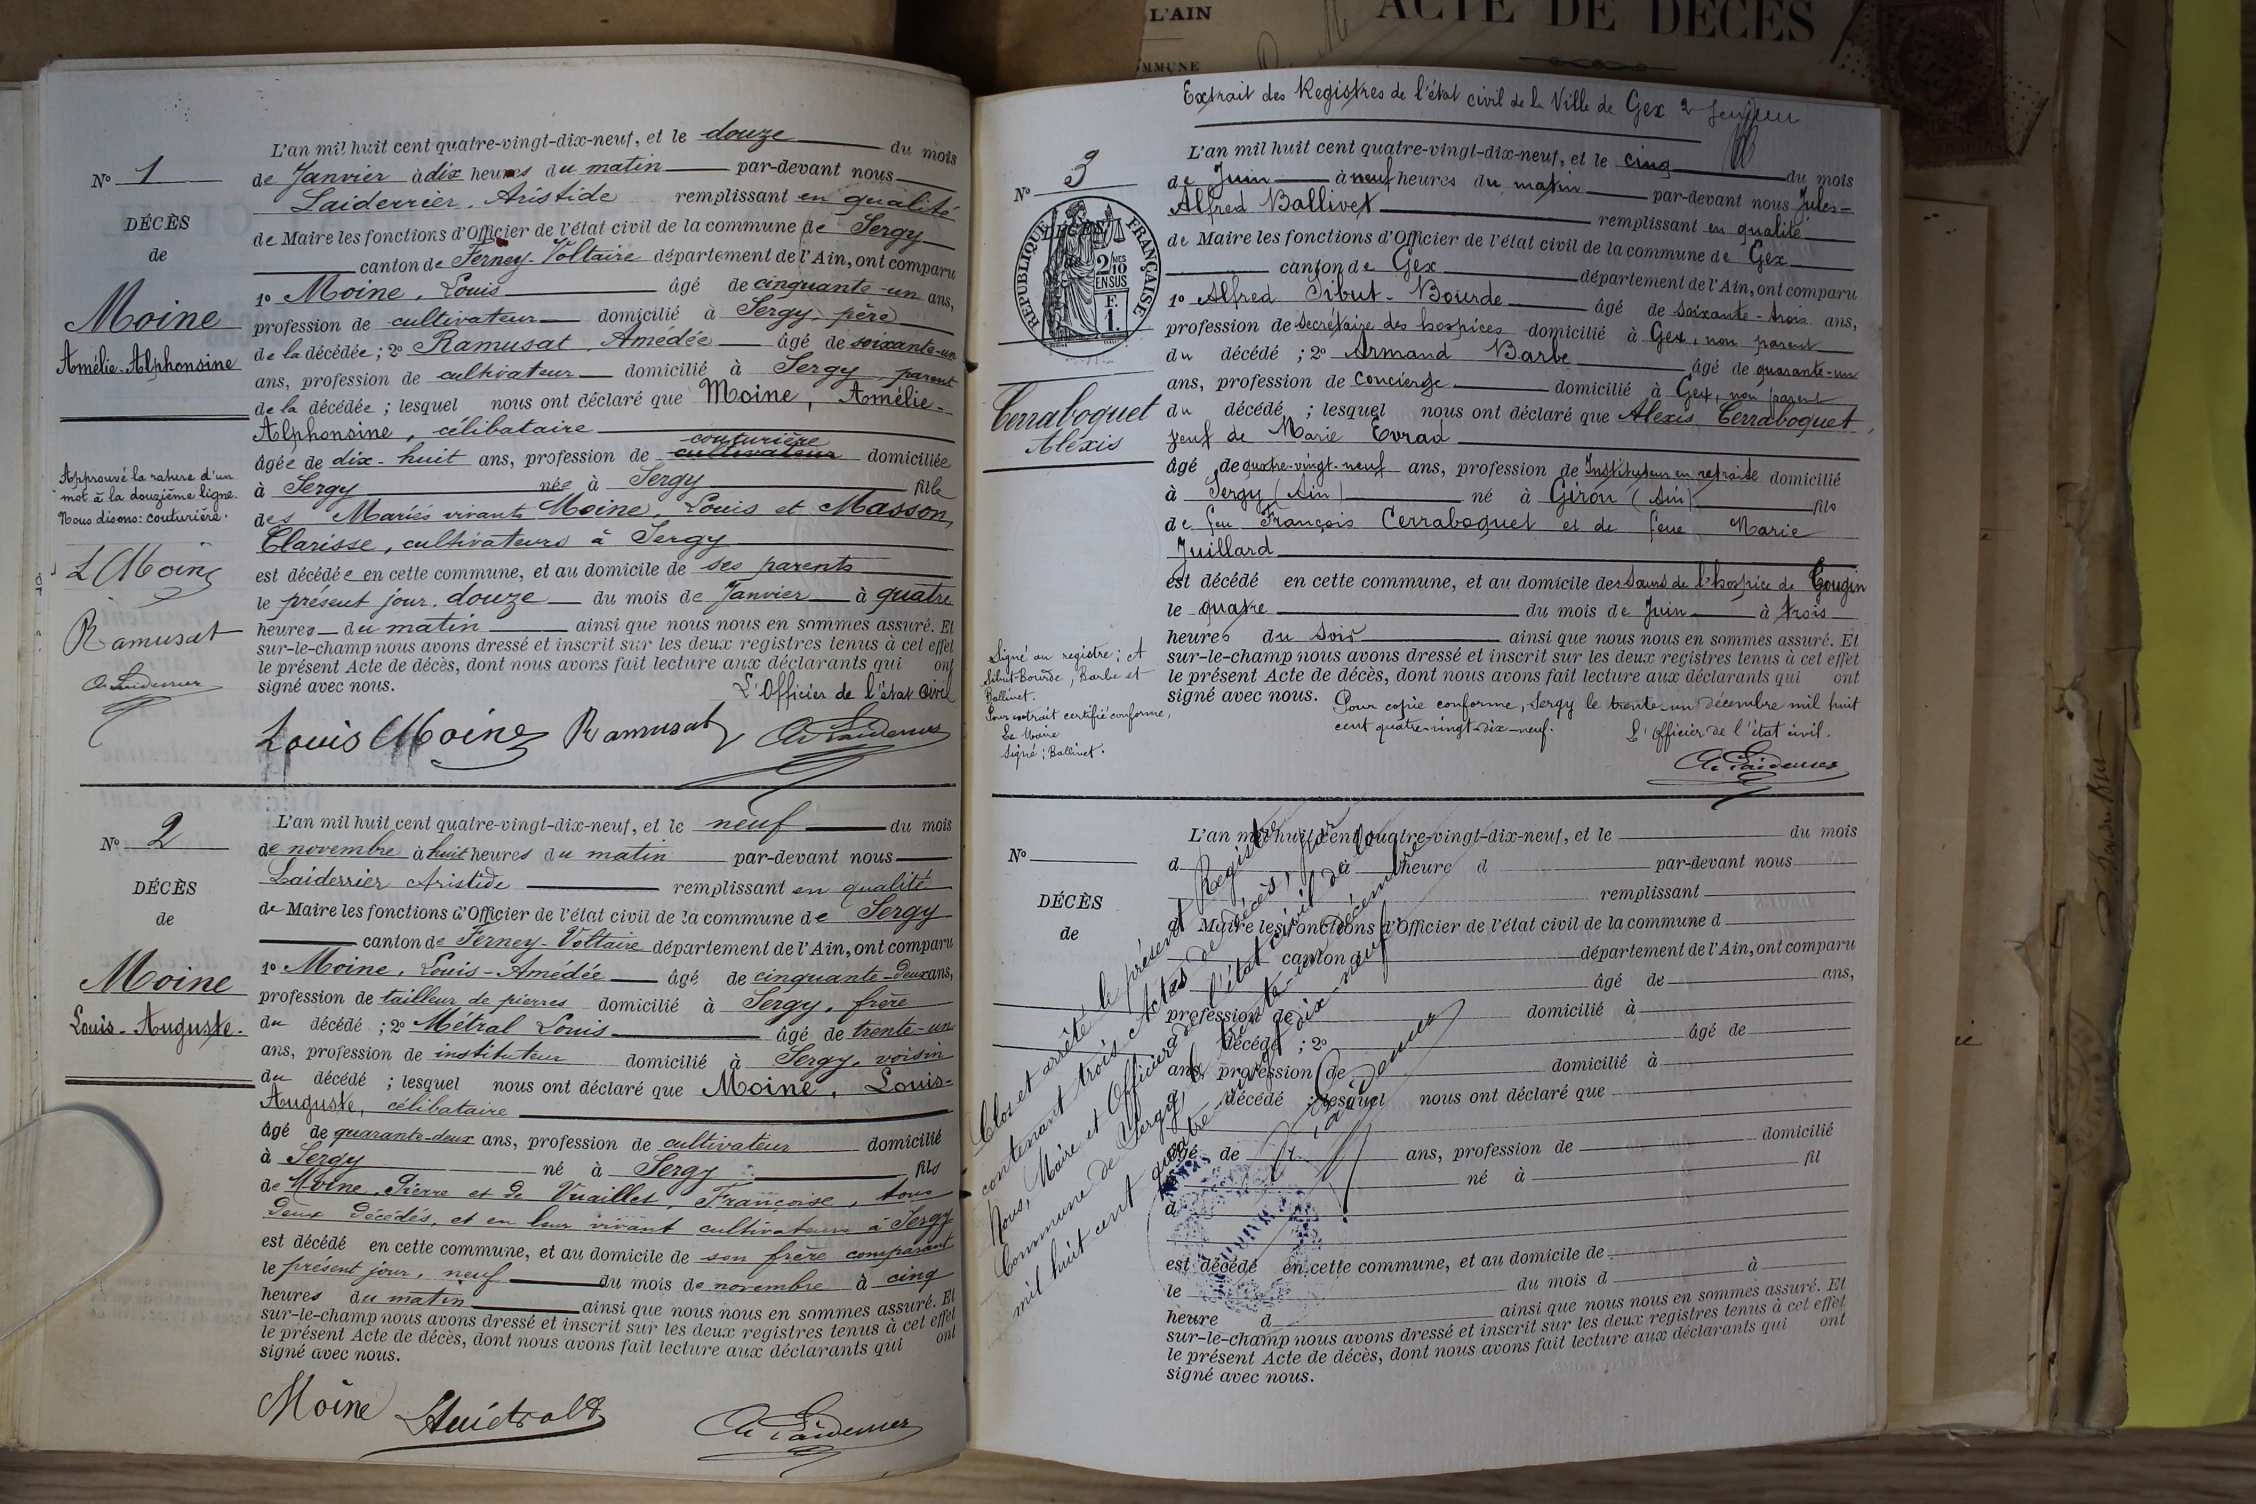 L'AIN
ACTE DE DÉCÈS
COMMUNE
N° 1
DÉCÈS
de
Moine
Amélie-Alphonsine
Approuvé la rature d'un
mot à la douzième ligne.
Nous disons: couturière.
L Moine
Ramusat
L'an mil huit cent quatre-vingt-dix-neuf, et le douze du mois
de Janvier à dix heures du matin par-devant nous
Laiderrier, Aristide remplissant en qualité
de Maire les fonctions d'Officier de l'état civil de la commune de Sergy
canton de Ferney-Voltaire département de l'Ain, ont comparu
1° Moine, Louis âgé de cinquante-un ans,
profession de cultivateur domicilié à Sergy, père
de la décédée; 2° Ramusat, Amédée âgé de soixante-un
ans, profession de cultivateur domicilié à Sergy, parent
de la décédée; lesquel nous ont déclaré que Moine, Amélie-
Alphonsine, célibataire
couturière
âgée de dix-huit ans, profession de cultivateur domiciliée
à Sergy née à Sergy fille
des Mariés vivants Moine, Louis et Masson,
Clarisse, cultivateurs à Sergy
est décédée en cette commune, et au domicile de ses parents
le présent jour, douze du mois de Janvier à quatre
heures du matin ainsi que nous nous en sommes assuré. Et
sur-le-champ nous avons dressé et inscrit sur les deux registres tenus à cet effet
le présent Acte de décès, dont nous avons fait lecture aux déclarants qui ont
signé avec nous.
L'Officier de l'état civil
Louis Moine Ramusat
N° 2
DÉCÈS
de
Moine
Louis-Auguste.
L'an mil huit cent quatre-vingt-dix-neuf, et le neuf du mois
de novembre à huit heures du matin par-devant nous
Laiderrier Aristide remplissant en qualité
de Maire les fonctions d'Officier de l'état civil de la commune de Sergy
canton de Ferney-Voltaire département de l'Ain, ont comparu
1° Moine, Louis-Amédée âgé de cinquante-deux ans,
profession de tailleur de pierres domicilié à Sergy, frère
du décédé; 2° Métral Louis âgé de trente-un
ans, profession de instituteur domicilié à Sergy, voisin
du décédé; lesquel nous ont déclaré que Moine, Louis-
Auguste, célibataire
âgé de quarante-deux ans, profession de cultivateur domicilié
à Sergy né à Sergy fils
de Moine, Pierre et de Vuaillet, Françoise, tous
deux décédés, et en leur vivant cultivateurs à Sergy
est décédé en cette commune, et au domicile de son frère comparant
le présent jour, neuf du mois de novembre à cinq
heures du matin ainsi que nous nous en sommes assuré. Et
sur-le-champ nous avons dressé et inscrit sur les deux registres tenus à cet effet
le présent Acte de décès, dont nous avons fait lecture aux déclarants qui ont
signé avec nous.
Moine
Extrait des Registres de l'état civil de la Ville de Gex
N° 3
DÉCÈS
de
RÉPUBLIQUE FRANÇAISE
2/10 EN SUS
F. 1.
Cerraboquet
Alexis
Signé au registre: A
Sibut-Bourde, Barbe et
Ballivet.
Pour extrait certifié conforme,
Le Maire
Signé: Ballivet.
L'an mil huit cent quatre-vingt-dix-neuf, et le cinq du mois
de Juin à neuf heures du matin par-devant nous Jules-
Alfred Ballivet remplissant en qualité
de Maire les fonctions d'Officier de l'état civil de la commune de Gex
canton de Gex département de l'Ain, ont comparu
1° Alfred Sibut-Bourde âgé de soixante-trois ans,
profession de secrétaire des hospices domicilié à Gex, non parent
du décédé; 2° Armand Barbe âgé de quarante-un
ans, profession de concierge domicilié à Gex, non parent
du décédé; lesquel nous ont déclaré que Alexis Cerraboquet,
veuf de Marie Evrad
âgé de quatre-vingt-neuf ans, profession de Instituteur en retraite domicilié
à Sergy (Ain) né à Giron (Ain) fils
de feu François Cerraboquet et de feue Marie
Juillard
est décédé en cette commune, et au domicile des Sœurs de l'hospice de Tougin
le quatre du mois de Juin à trois
heures du soir ainsi que nous nous en sommes assuré. Et
sur-le-champ nous avons dressé et inscrit sur les deux registres tenus à cet effet
le présent Acte de décès, dont nous avons fait lecture aux déclarants qui ont
signé avec nous. Pour copie conforme, Sergy le trente-un décembre mil huit
cent quatre-vingt-dix-neuf. L'officier de l'état civil.
N°
DÉCÈS
de
L'an mil huit cent quatre-vingt-dix-neuf, et le du mois
d à heure d par-devant nous
remplissant
d Maire les fonctions d'Officier de l'état civil de la commune d
canton d département de l'Ain, ont comparu
âgé de ans,
profession de domicilié à
décédé; 2° âgé de
ans, profession de domicilié à
décédé; lesquel nous ont déclaré que
âgé de ans, profession de domicilié
né à fil
d
est décédé en cette commune, et au domicile de
le du mois d à
heure d ainsi que nous nous en sommes assuré. Et
sur-le-champ nous avons dressé et inscrit sur les deux registres tenus à cet effet
le présent Acte de décès, dont nous avons fait lecture aux déclarants qui ont
signé avec nous.
Clos et arrêté le présent Registre
contenant trois Actes de décès, par
Nous, Maire et Officier de l'état civil de la
Commune de Sergy, le trente-un décembre
mil huit cent quatre-vingt dix neuf